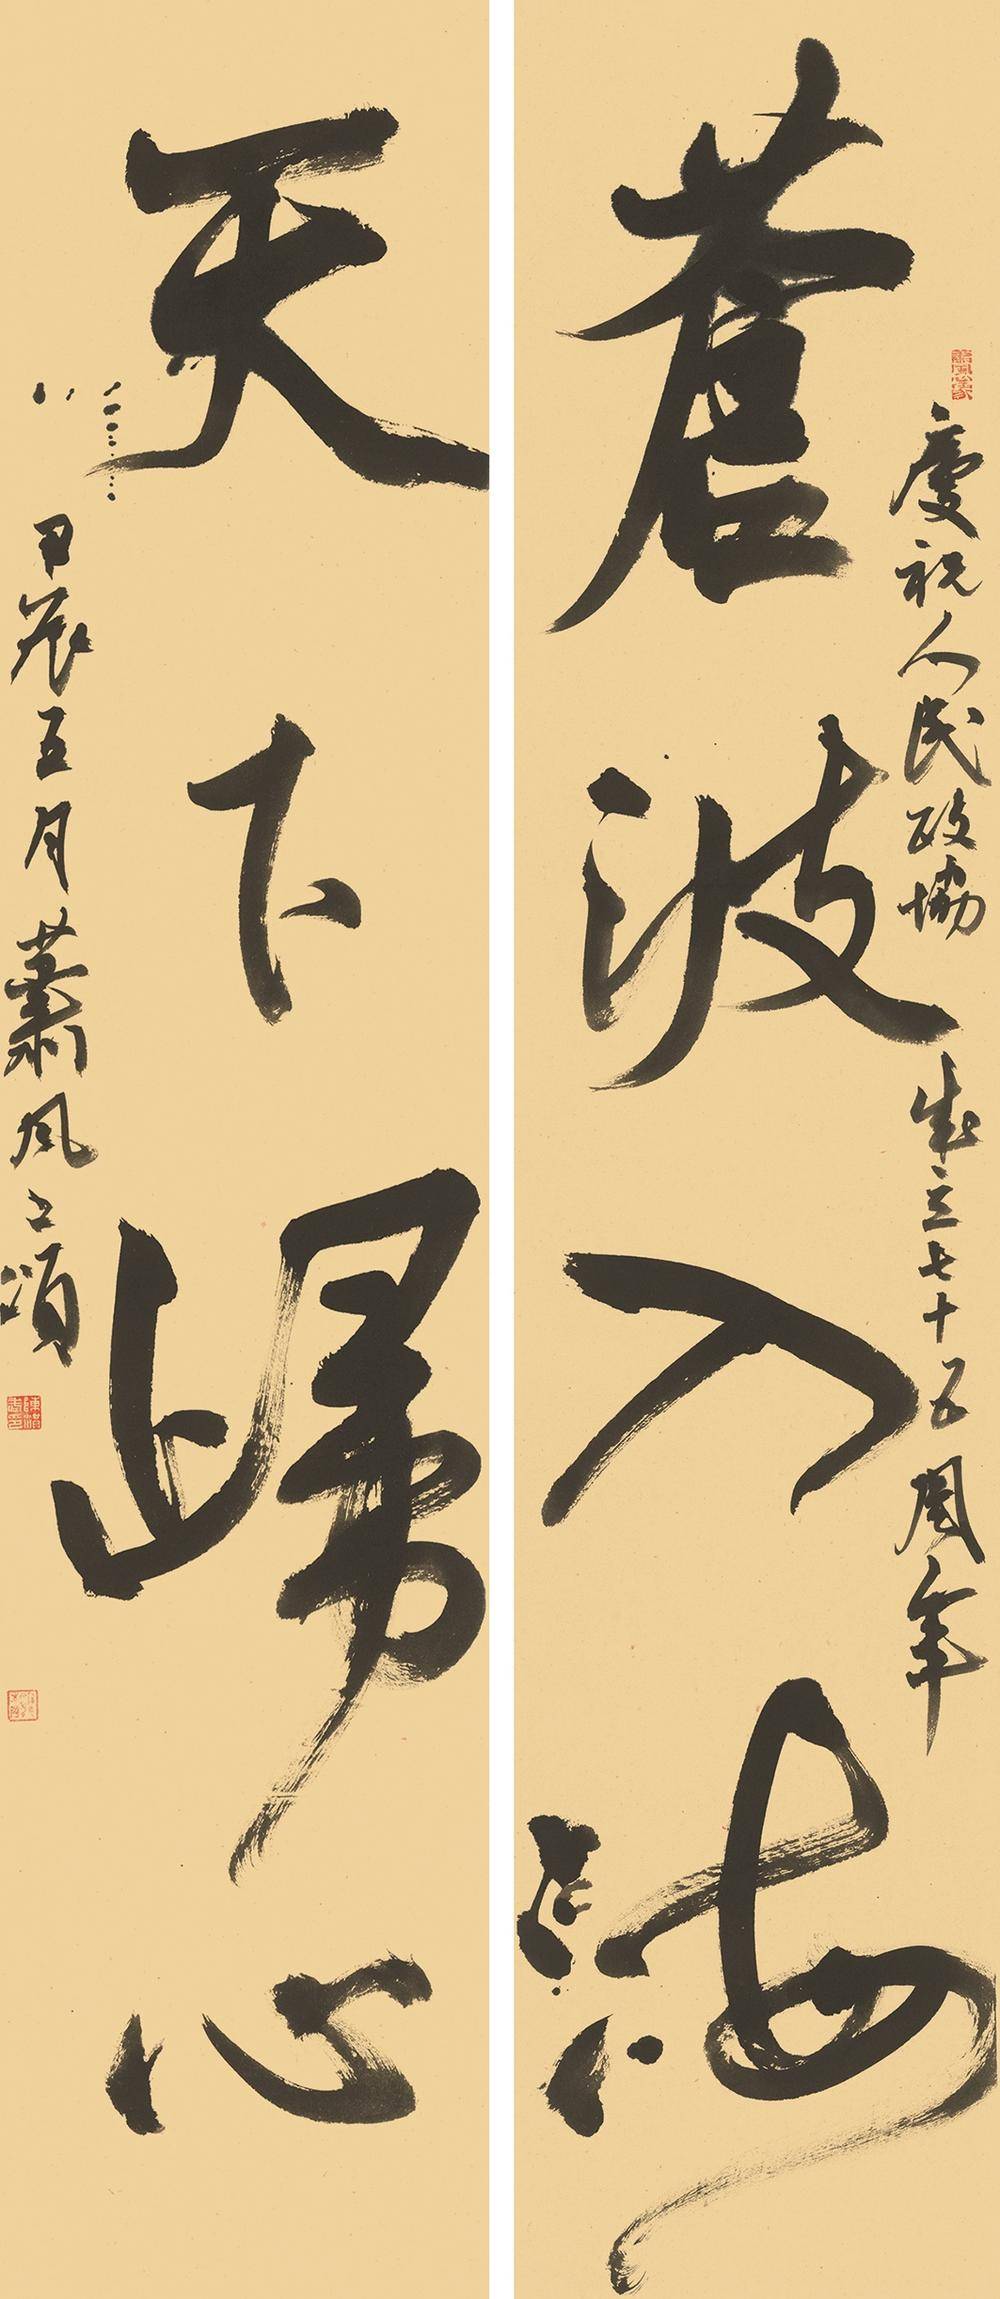 慶祝人民政協成立七十五周年
蒼波入海
天下歸心
甲辰五月蕭風之頌
陳洪武印